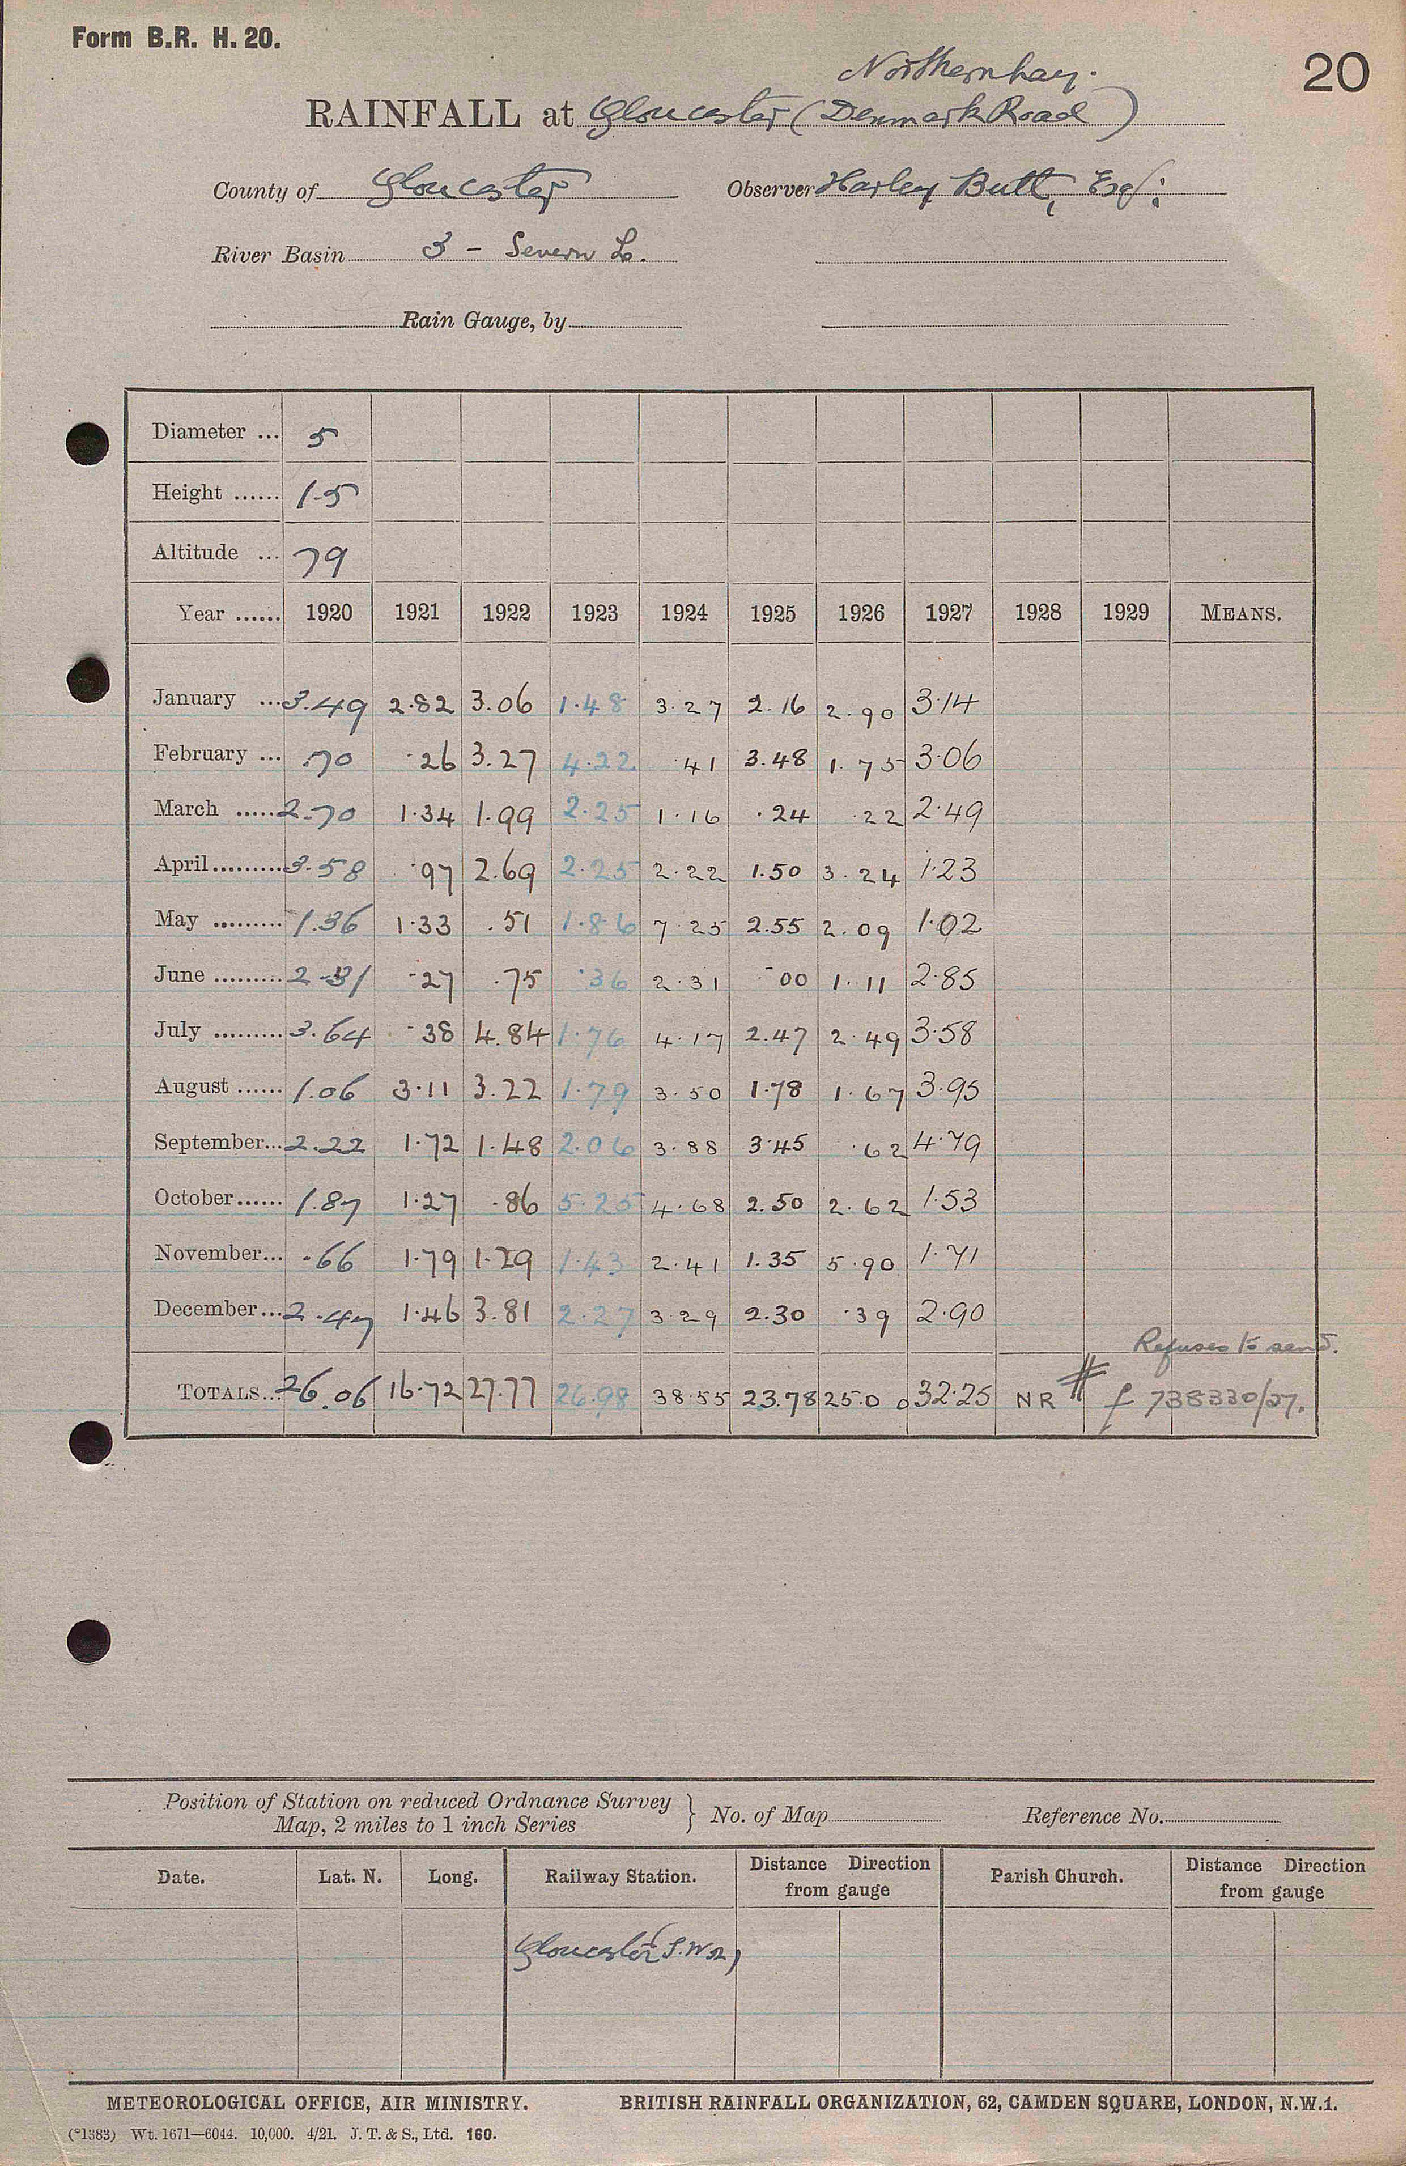 Form B.R. H. 20.
20
Northernhay.
RAINFALL at Gloucester (Denmark Road)
County of Gloucester Observer Harley Butt, Esq:
River Basin 3 - Severn L.
Rain Gauge, by
Diameter ... 5
Height ...... 1.5
Altitude ... 79
Year ...... 1920 1921 1922 1923 1924 1925 1926 1927 1928 1929 MEANS.
January ... 3.49 2.82 3.06 1.48 3.27 2.16 2.90 3.14
February ... .70 .26 3.27 4.22 .41 3.48 1.75 3.06
March ..... 2.70 1.34 1.99 2.25 1.16 .24 .22 2.49
April ......... 3.58 .97 2.69 2.25 2.22 1.50 3.24 1.23
May ......... 1.36 1.33 .51 1.86 7.25 2.55 2.09 1.02
June ......... 2.31 .27 .75 .36 2.31 .00 1.11 2.85
July ......... 3.64 .38 4.84 1.76 4.17 2.47 2.49 3.58
August ...... 1.06 3.11 3.22 1.79 3.50 1.78 1.67 3.95
September... 2.22 1.72 1.48 2.06 3.88 3.45 .62 4.79
October...... 1.87 1.27 .86 5.25 4.68 2.50 2.62 1.53
November... .66 1.79 1.29 1.43 2.41 1.35 5.90 1.71
December... 2.47 1.46 3.81 2.27 3.29 2.30 .39 2.90
Refuses to send.
TOTALS... 26.06 16.72 27.77 26.98 38.55 23.78 25.00 32.25 NR # f 738330/27.
Position of Station on reduced Ordnance Survey
Map, 2 miles to 1 inch Series } No. of Map Reference No.
Date. Lat. N. Long. Railway Station. Distance Direction from gauge Parish Church. Distance Direction from gauge
Gloucester
METEOROLOGICAL OFFICE, AIR MINISTRY. BRITISH RAINFALL ORGANIZATION, 62, CAMDEN SQUARE, LONDON, N.W.1.
(*1383) Wt. 1671—6044. 10,000. 4/21. J. T. & S., Ltd. 160.